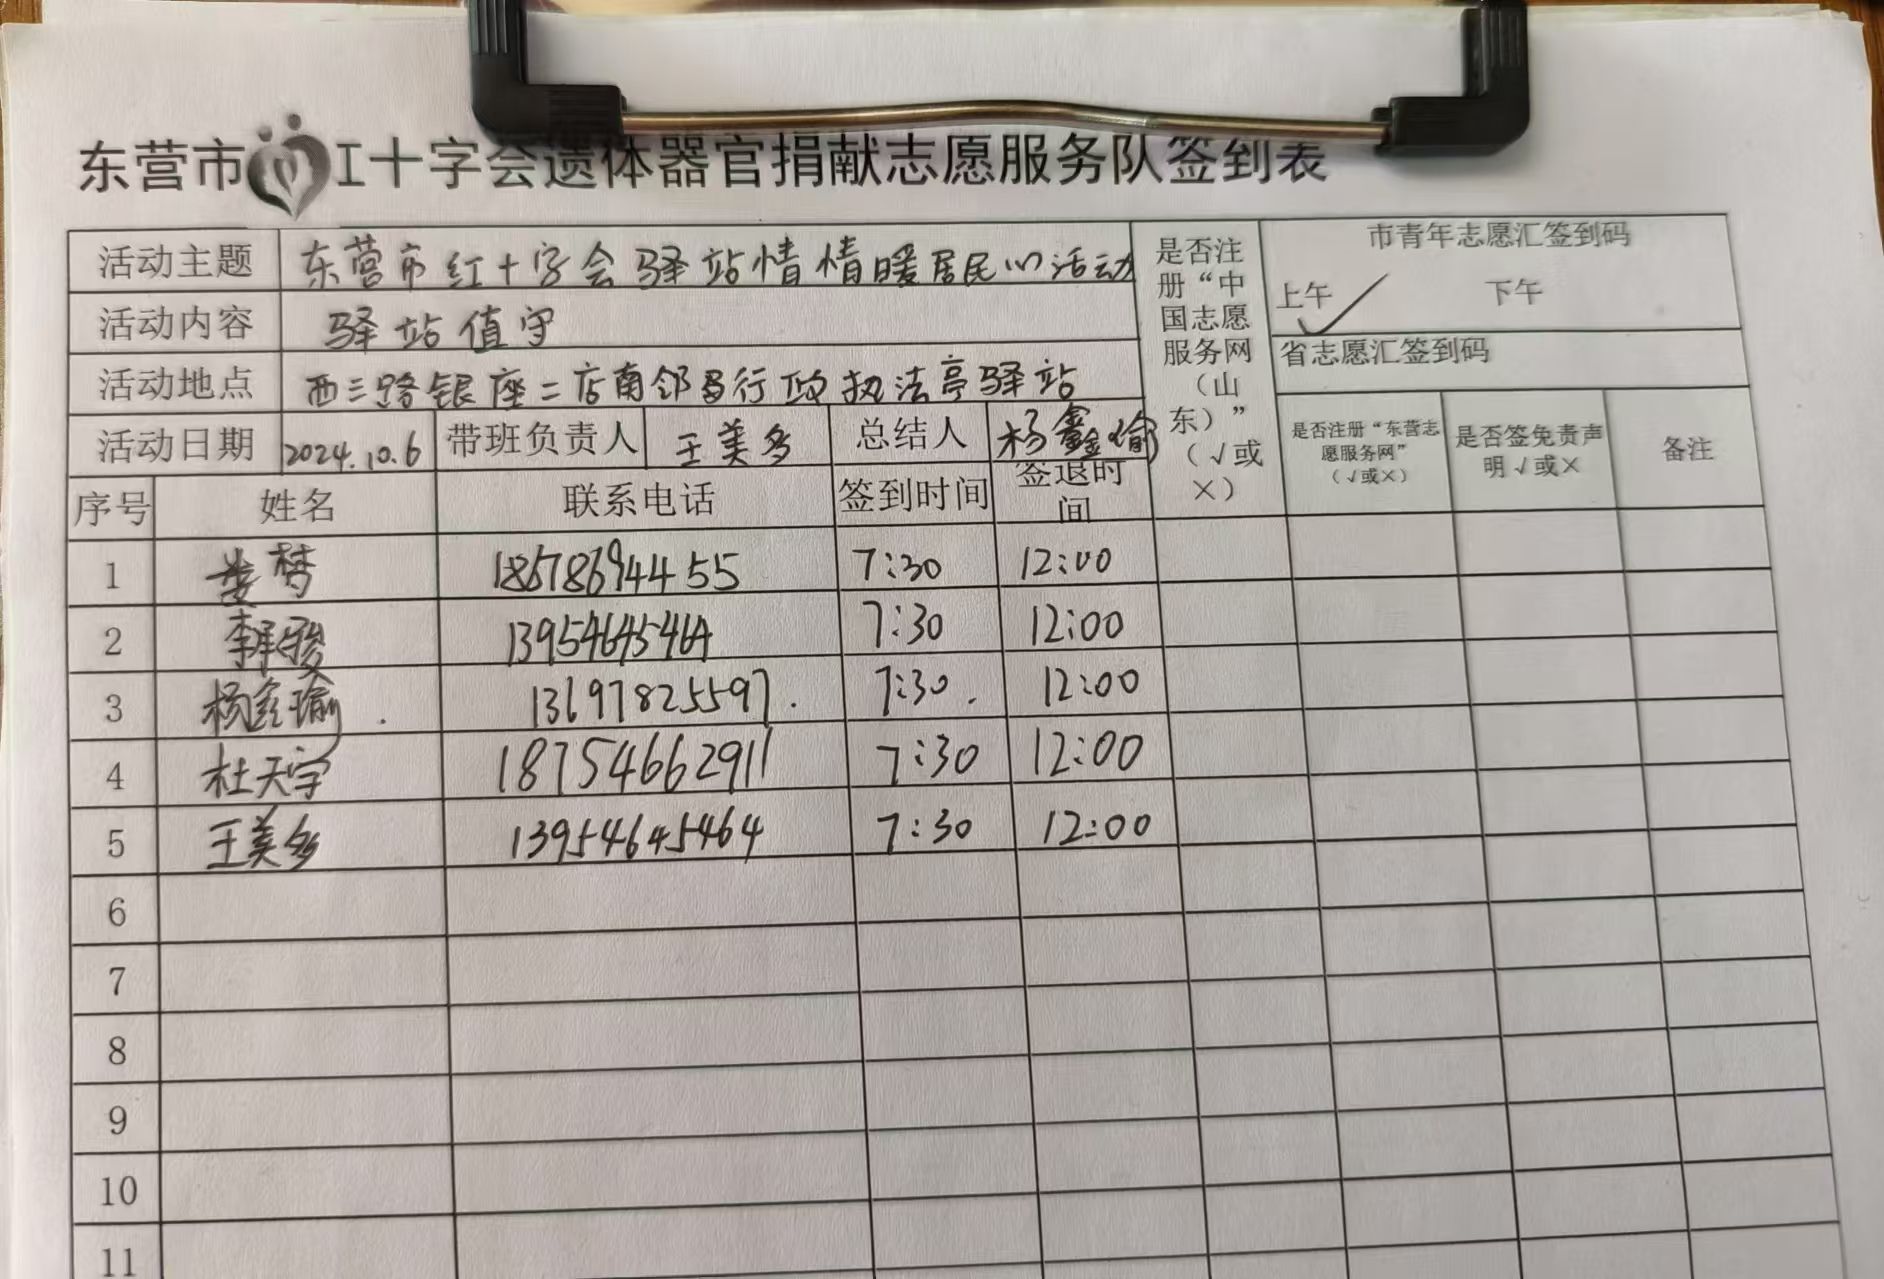 东营市红十字会遗体器官捐献志愿服务队签到表
活动主题 东营市红十字会驿站情情暖居民心活动
活动内容 驿站值守
活动地点 西三路银座二店南邻 行政执法亭驿站
活动日期 2024.10.6 带班负责人 王美多 总结人 杨鑫瑜
是否注册“中国志愿服务网（山东）”（√或×）
市青年志愿汇签到码
上午 ✓ 下午
省志愿汇签到码
是否注册“东营志愿服务网”（√或×） 是否签免责声明√或× 备注
序号 姓名 联系电话 签到时间 签退时间
1 娄梦 18678694455 7:30 12:00
2 13954645464 7:30 12:00
3 杨鑫瑜 13697825597 7:30 12:00
4 杜天宇 18754662911 7:30 12:00
5 王美多 13954645464 7:30 12:00
6
7
8
9
10
11